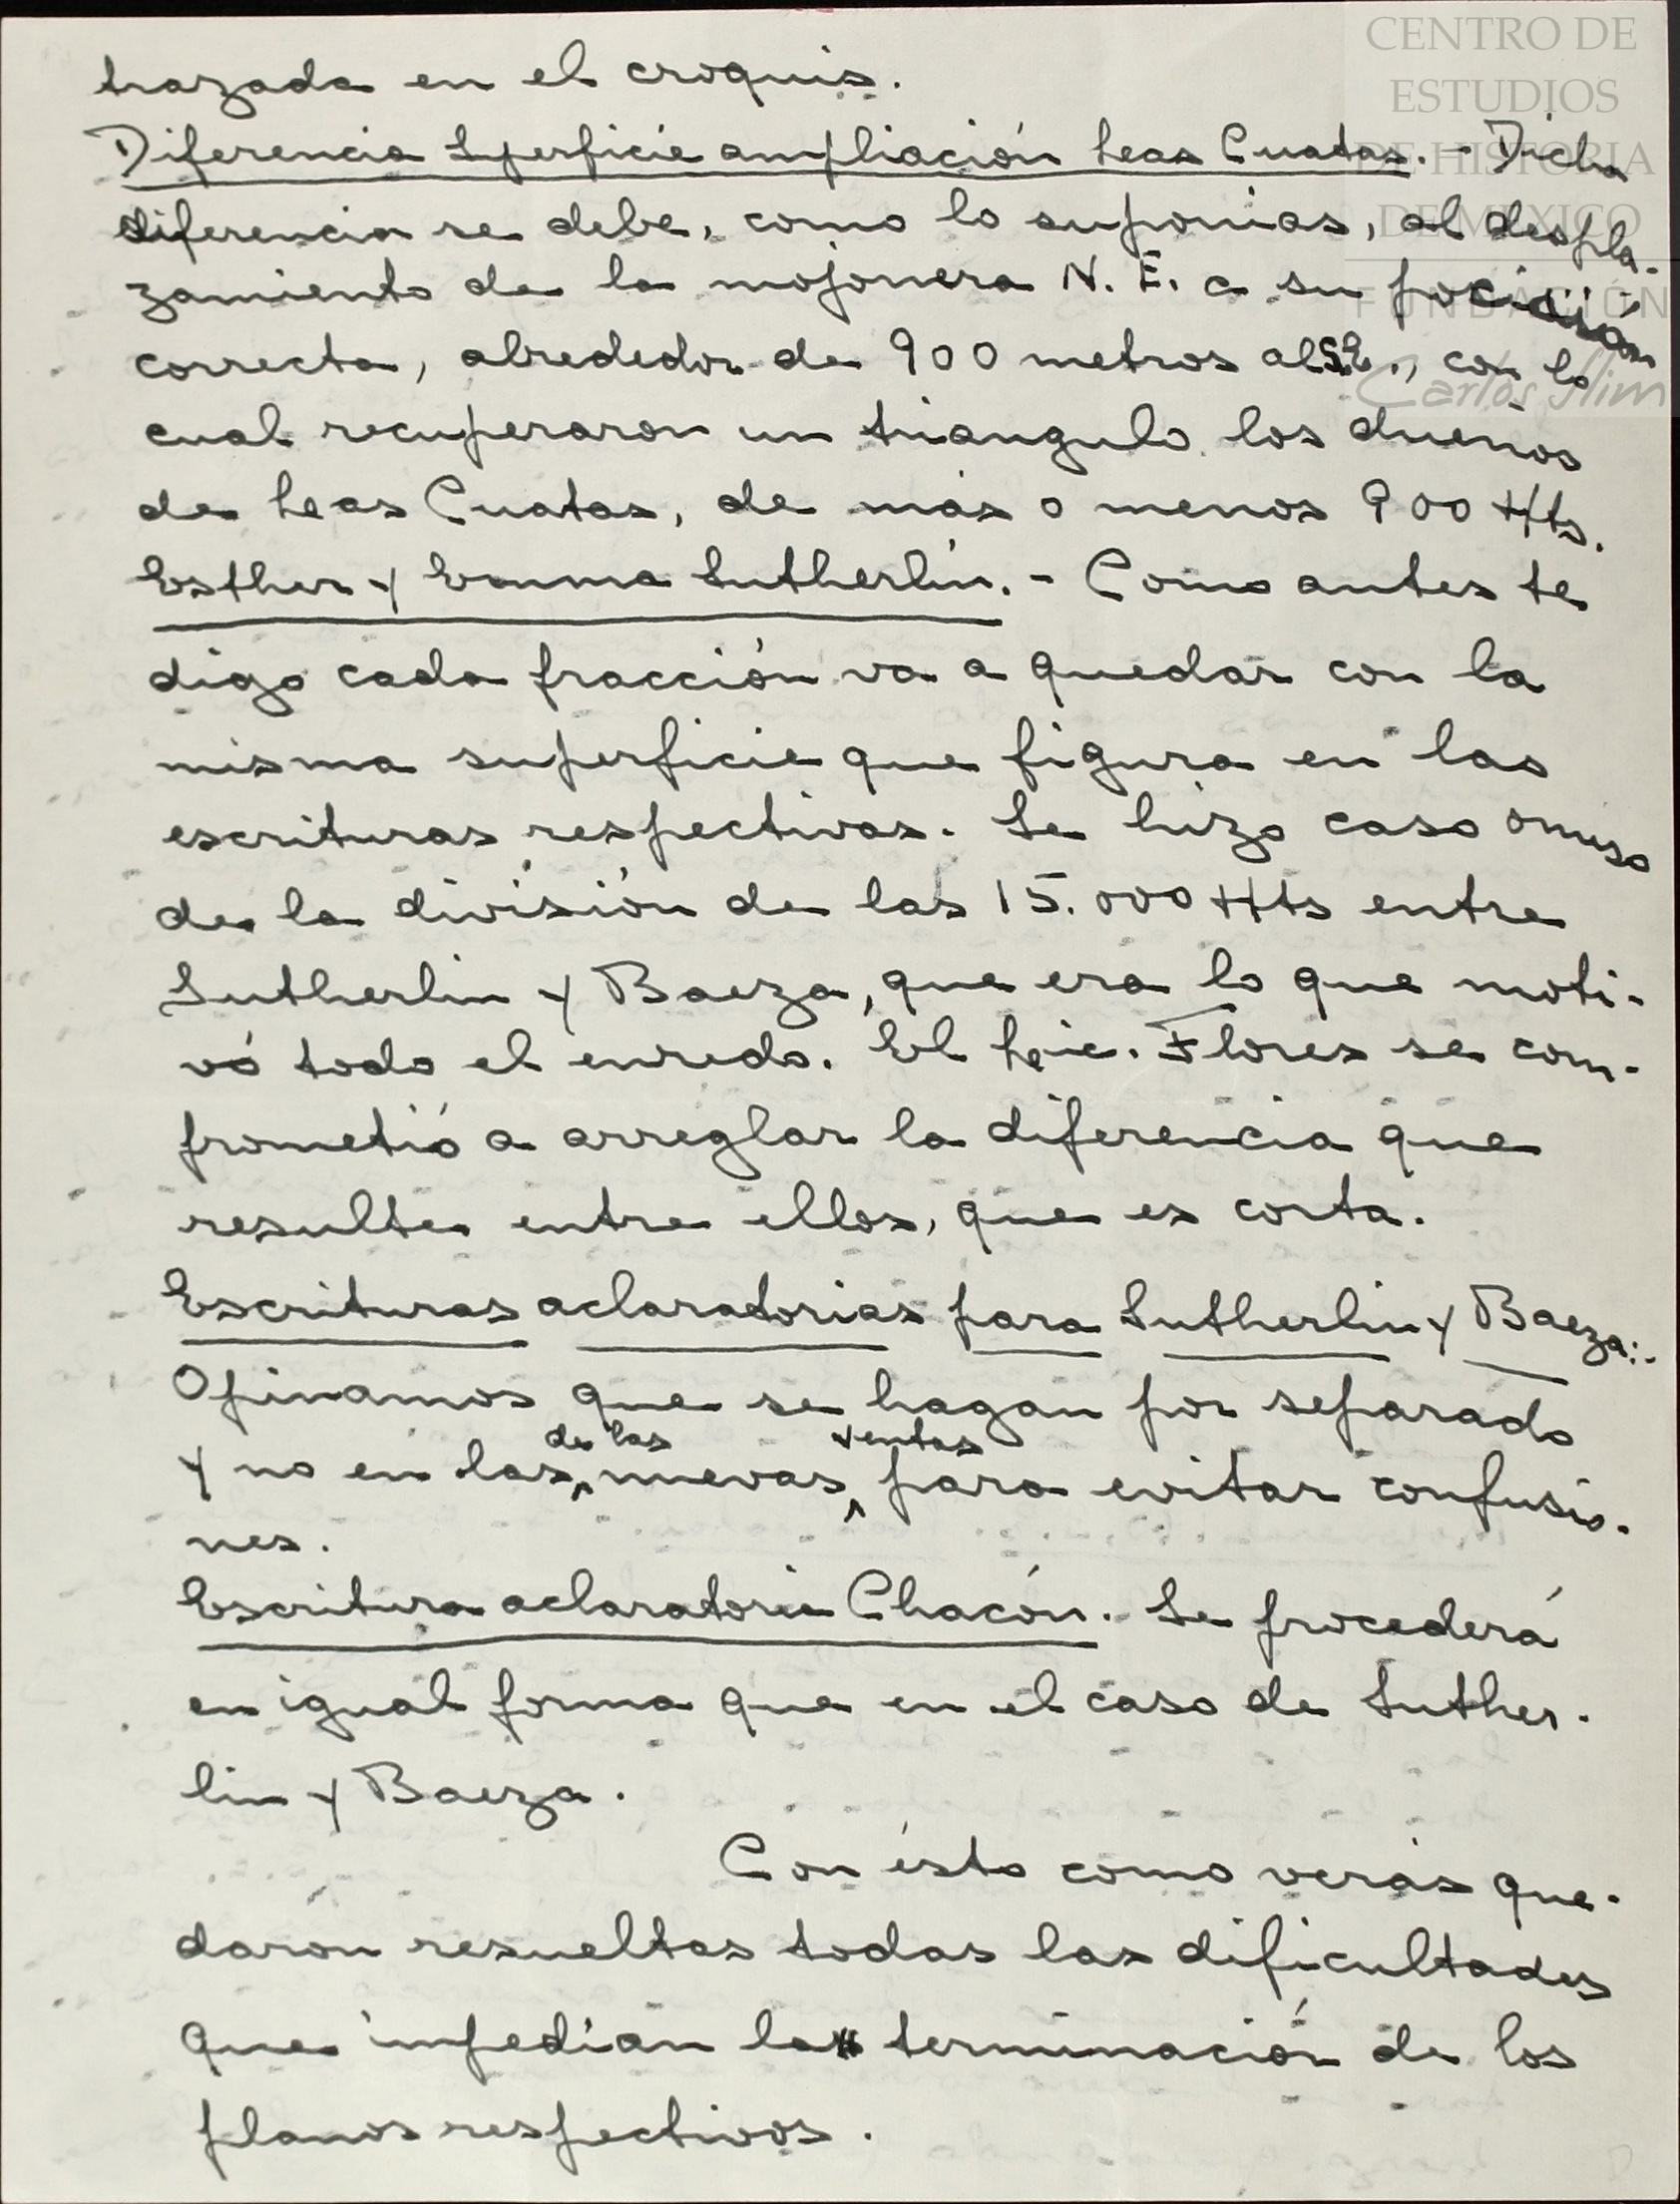 CENTRO DE
ESTUDIOS
DE HISTORIA
DE MÉXICO
FUNDACIÓN
Carlos Slim
trazada en el croquis.
Diferencia Superficie ampliación Las Cuatas. - Dicha
diferencia se debe, como lo suponias, al despla-
zamiento de la mojonera N. E. a su posición
correcta, alrededor de 900 metros al SE., con lo
cual recuperaron un triangulo los dueños
de Las Cuatas, de más o menos 900 Hts.
Esther y Emma Sutherlin. - Como antes te
digo cada fracción va a quedar con la
misma superficie que figura en las
escrituras respectivas. Se hizo caso omiso
de la división de las 15.000 Hts entre
Sutherlin y Baeza, que era lo que moti-
vó todo el enredo. El Lic. Flores se com-
prometió a arreglar la diferencia que
resulte entre ellos, que es corta.
Escrituras aclaratorias para Sutherlin y Baeza:-
Opinamos que se hagan por separado
y no en las de las nuevas ventas para evitar confusio-
nes.
Escritura aclaratoria Chacón. - Se procederá
en igual forma que en el caso de Suther-
lin y Baeza.
Con ésto como verás que-
daron resueltas todas las dificultades
que impedían la terminación de los
planos respectivos.